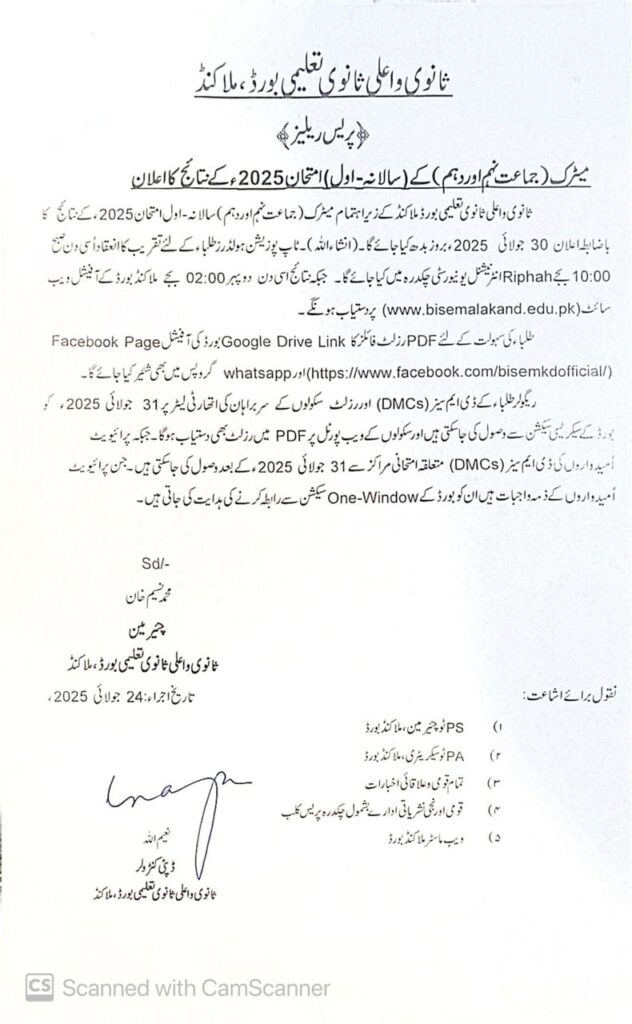 ثانوی و اعلیٰ ثانوی تعلیمی بورڈ، ملاکنڈ
﴿پریس ریلیز﴾
میٹرک (جماعت نہم اور دہم) کے (سالانہ-اول) امتحان 2025ء کے نتائج کا اعلان
ثانوی و اعلیٰ ثانوی تعلیمی بورڈ ملاکنڈ کے زیر اہتمام میٹرک (جماعت نہم اور دہم) سالانہ-اول امتحان 2025ء کے نتائج کا
باضابطہ اعلان 30 جولائی 2025ء بروز بدھ کیا جائے گا۔ (انشاءاللہ)۔ ٹاپ پوزیشن ہولڈرز طلباء کے لئے تقریب کا انعقاد اُسی دن صبح
10:00 بجے Riphah انٹرنیشنل یونیورسٹی چکدرہ میں کیا جائے گا۔ جبکہ نتائج اسی دن دوپہر 02:00 بجے ملاکنڈ بورڈ کے آفیشل ویب
سائٹ (www.bisemalakand.edu.pk) پر دستیاب ہونگے۔
طلباء کی سہولت کے لئے PDF رزلٹ فائلز کا Google Drive Link بورڈ کی آفیشل Facebook Page
(https://www.facebook.com/bisemkdofficial/) اور whatsapp گروپس میں بھی شئیر کیا جائے گا۔
ریگولر طلباء کے ڈی ایم سیز (DMCs) اور رزلٹ سکولوں کے سربراہان کی اتھارٹی لیٹر پر 31 جولائی 2025ء کو
بورڈ کے سیکریسی سیکشن سے وصول کی جاسکتی ہیں اور سکولوں کے ویب پورٹل پر PDF میں رزلٹ بھی دستیاب ہوگا۔ جبکہ پرائیویٹ
اُمیدواروں کی ڈی ایم سیز (DMCs) متعلقہ امتحانی مراکز سے 31 جولائی 2025ء کے بعد وصول کی جاسکتی ہیں۔ جن پرائیویٹ
اُمیدواروں کے ذمہ واجبات ہیں ان کو بورڈ کے One-Window سیکشن سے رابطہ کرنے کی ہدایت کی جاتی ہیں۔
Sd/-
محمد نسیم خان
چئیرمین
ثانوی و اعلیٰ ثانوی تعلیمی بورڈ، ملاکنڈ
تاریخ اجراء: 24 جولائی 2025ء
نقول برائے اشاعت:
۱) PS ٹو چئیرمین، ملاکنڈ بورڈ
۲) PA ٹو سیکریٹری، ملاکنڈ بورڈ
۳) تمام قومی و علاقائی اخبارات
۴) قومی اور نجی نشریاتی ادارے بشمول چکدرہ پریس کلب
۵) ویب ماسٹر ملاکنڈ بورڈ
نعیم اللہ
ڈپٹی کنٹرولر
ثانوی و اعلیٰ ثانوی تعلیمی بورڈ، ملاکنڈ
CS Scanned with CamScanner